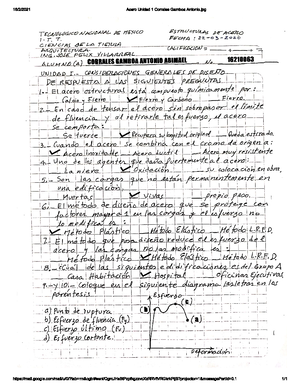 15/3/2021
Acero Unidad 1 Corrales Gamboa Antonio.jpg
TECNOLÓGICO NACIONAL DE MÉXICO
ESTRUCTURAS DE ACERO
I. T. T.
FECHA: 22-03-2020
CIENCIAS DE LA TIERRA
ARQUITECTURA
CALIFICACIÓN
ING. JOSÉ FÉLIX VILLARREAL
ALUMNO(A) CORRALES GAMBOA ANTONIO No. 16210663
UNIDAD I.- CONSIDERACIONES GENERALES DE DISEÑO
DE RESPUESTA A LAS SIGUIENTES PREGUNTAS
1.- El acero estructural está compuesto químicamente por:
Calcio y Fierro ✓ Fierro y Carbono Fierro
2.- En caso de tensar el acero sin sobrepasar el límite
de fluencia y al retirarle tal esfuerzo, el acero
se comporta:
Se vuelve ✓ Recupera su longitud original Queda estirado
3.- Cuando el acero se combina con el cromo da origen a:
✓ Acero inoxidable Acero Inestable Acero muy resistente
4.- Uno de los agentes que daña fuertemente al acero:
La nieve ✓ Oxidación su colocación en obra
5.- Son las cargas que no están permanentemente en
una edificación
Muertas ✓ Vivas propio peso
6.- El método de diseño de acero que se protege con
factores mayores en las cargas y el esfuerzo no
lo modifica es:
✓ Método Plástico Método Elástico Método L.R.F.D.
7.- El método que para diseño reduce el esfuerzo del
acero y las cargas no las modifica es:
Método Plástico ✓ Método Elástico Método L.R.F.D.
8.- ¿Cuál de las siguientes edificaciones es del Grupo A
Casa Habitación ✓ Hospital Oficinas Ejecutivas
9.- y 10.- Coloque en el siguiente diagrama letras en los
paréntesis
Esfuerzo
a) Punto de ruptura
b) Esfuerzo de fluencia (Fy)
c) Esfuerzo último
d) Esfuerzo cortante.
Deformación
1/1